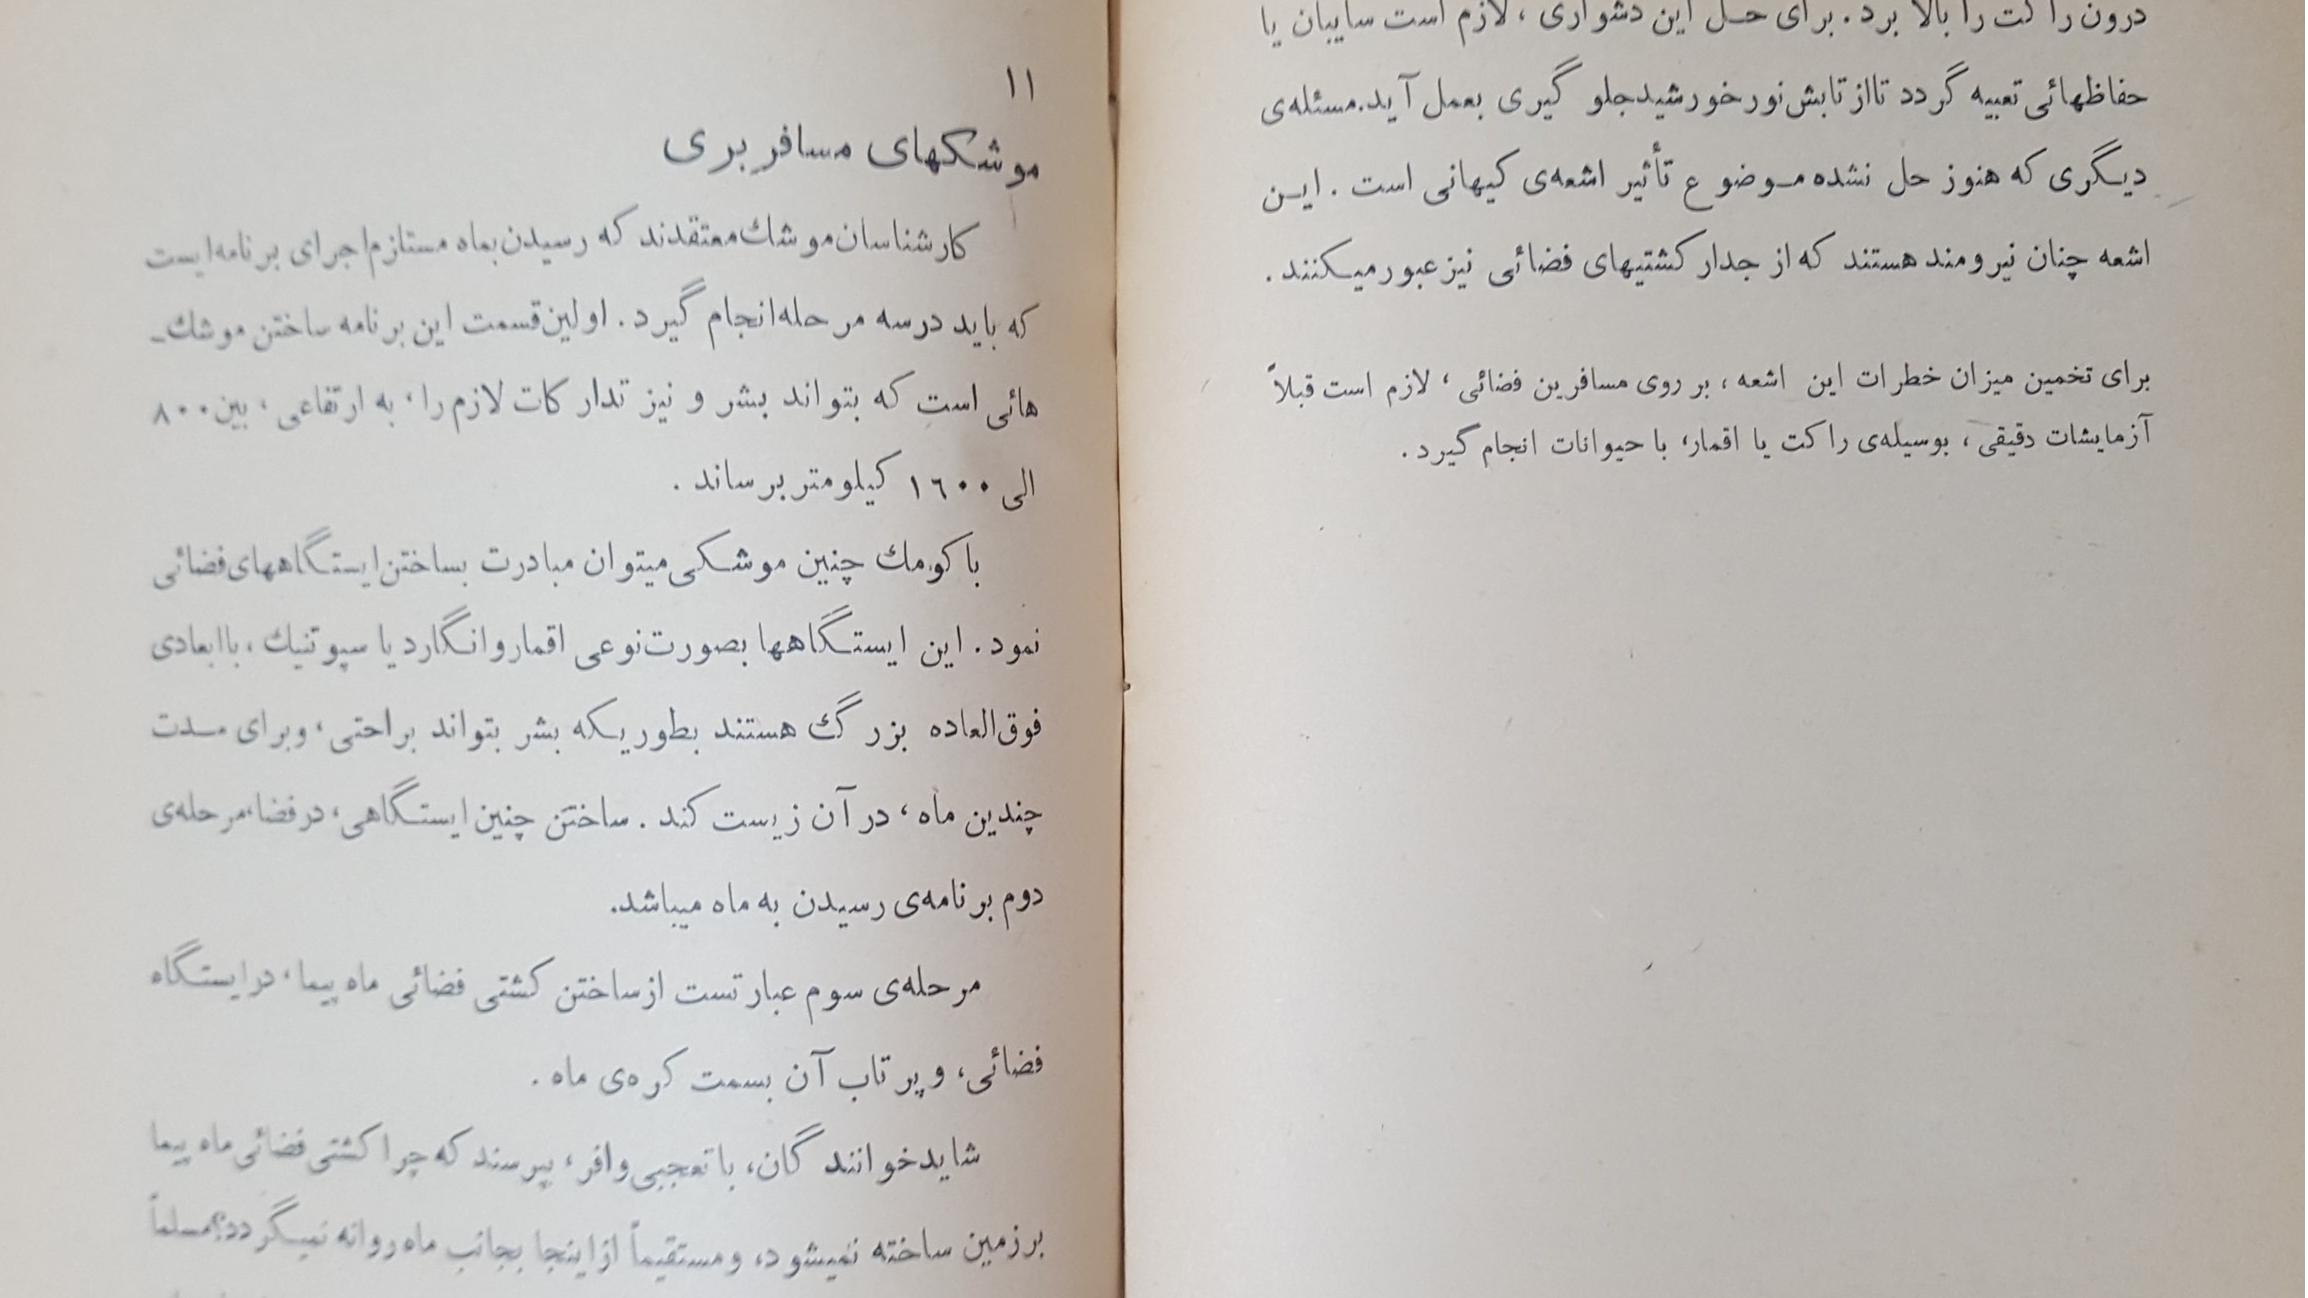 درون راکت را بالا برد. برای حل این دشواری، لازم است سایبان یا
حفاظهائی تعبیه گردد تا از تابش نور خورشید جلو گیری بعمل آید. مسئله‌ی
دیگری که هنوز حل نشده موضوع تأثیر اشعه‌ی کیهانی است. این
اشعه چنان نیرومند هستند که از جدار کشتیهای فضائی نیز عبور میکنند.
برای تخمین میزان خطرات این اشعه، بر روی مسافرین فضائی، لازم است قبلاً
آزمایشات دقیقی، بوسیله‌ی راکت یا اقمار، با حیوانات انجام گیرد.
۱۱
موشکهای مسافر بری
کارشناسان موشك معتقدند که رسیدن بماه مستلزم اجرای برنامه‌ایست
که باید در سه مرحله انجام گیرد. اولین قسمت این برنامه ساختن موشك-
هائی است که بتواند بشر و نیز تدارکات لازم را، به ارتفاعی، بین ۸۰۰
الی ۱٦۰۰ کیلومتر برساند.
با کومك چنین موشکی میتوان مبادرت بساختن ایستگاههای فضائی
نمود. این ایستگاهها بصورت نوعی اقمار وانگارد یا سپوتنیك، با ابعادی
فوق‌العاده بزرگ هستند بطوریکه بشر بتواند براحتی، و برای مدت
چندین ماه، در آن زیست کند. ساختن چنین ایستگاهی، در فضا، مرحله‌ی
دوم برنامه‌ی رسیدن به ماه میباشد.
مرحله‌ی سوم عبارتست از ساختن کشتی فضائی ماه پیما، در ایستگاه
فضائی، و پرتاب آن بسمت کره‌ی ماه.
شاید خوانندگان، با تعجبی وافر، بپرسند که چرا کشتی فضائی ماه پیما
بر زمین ساخته نمیشود، و مستقیماً از اینجا بجانب ماه روانه نمیگردد؟ مسلماً